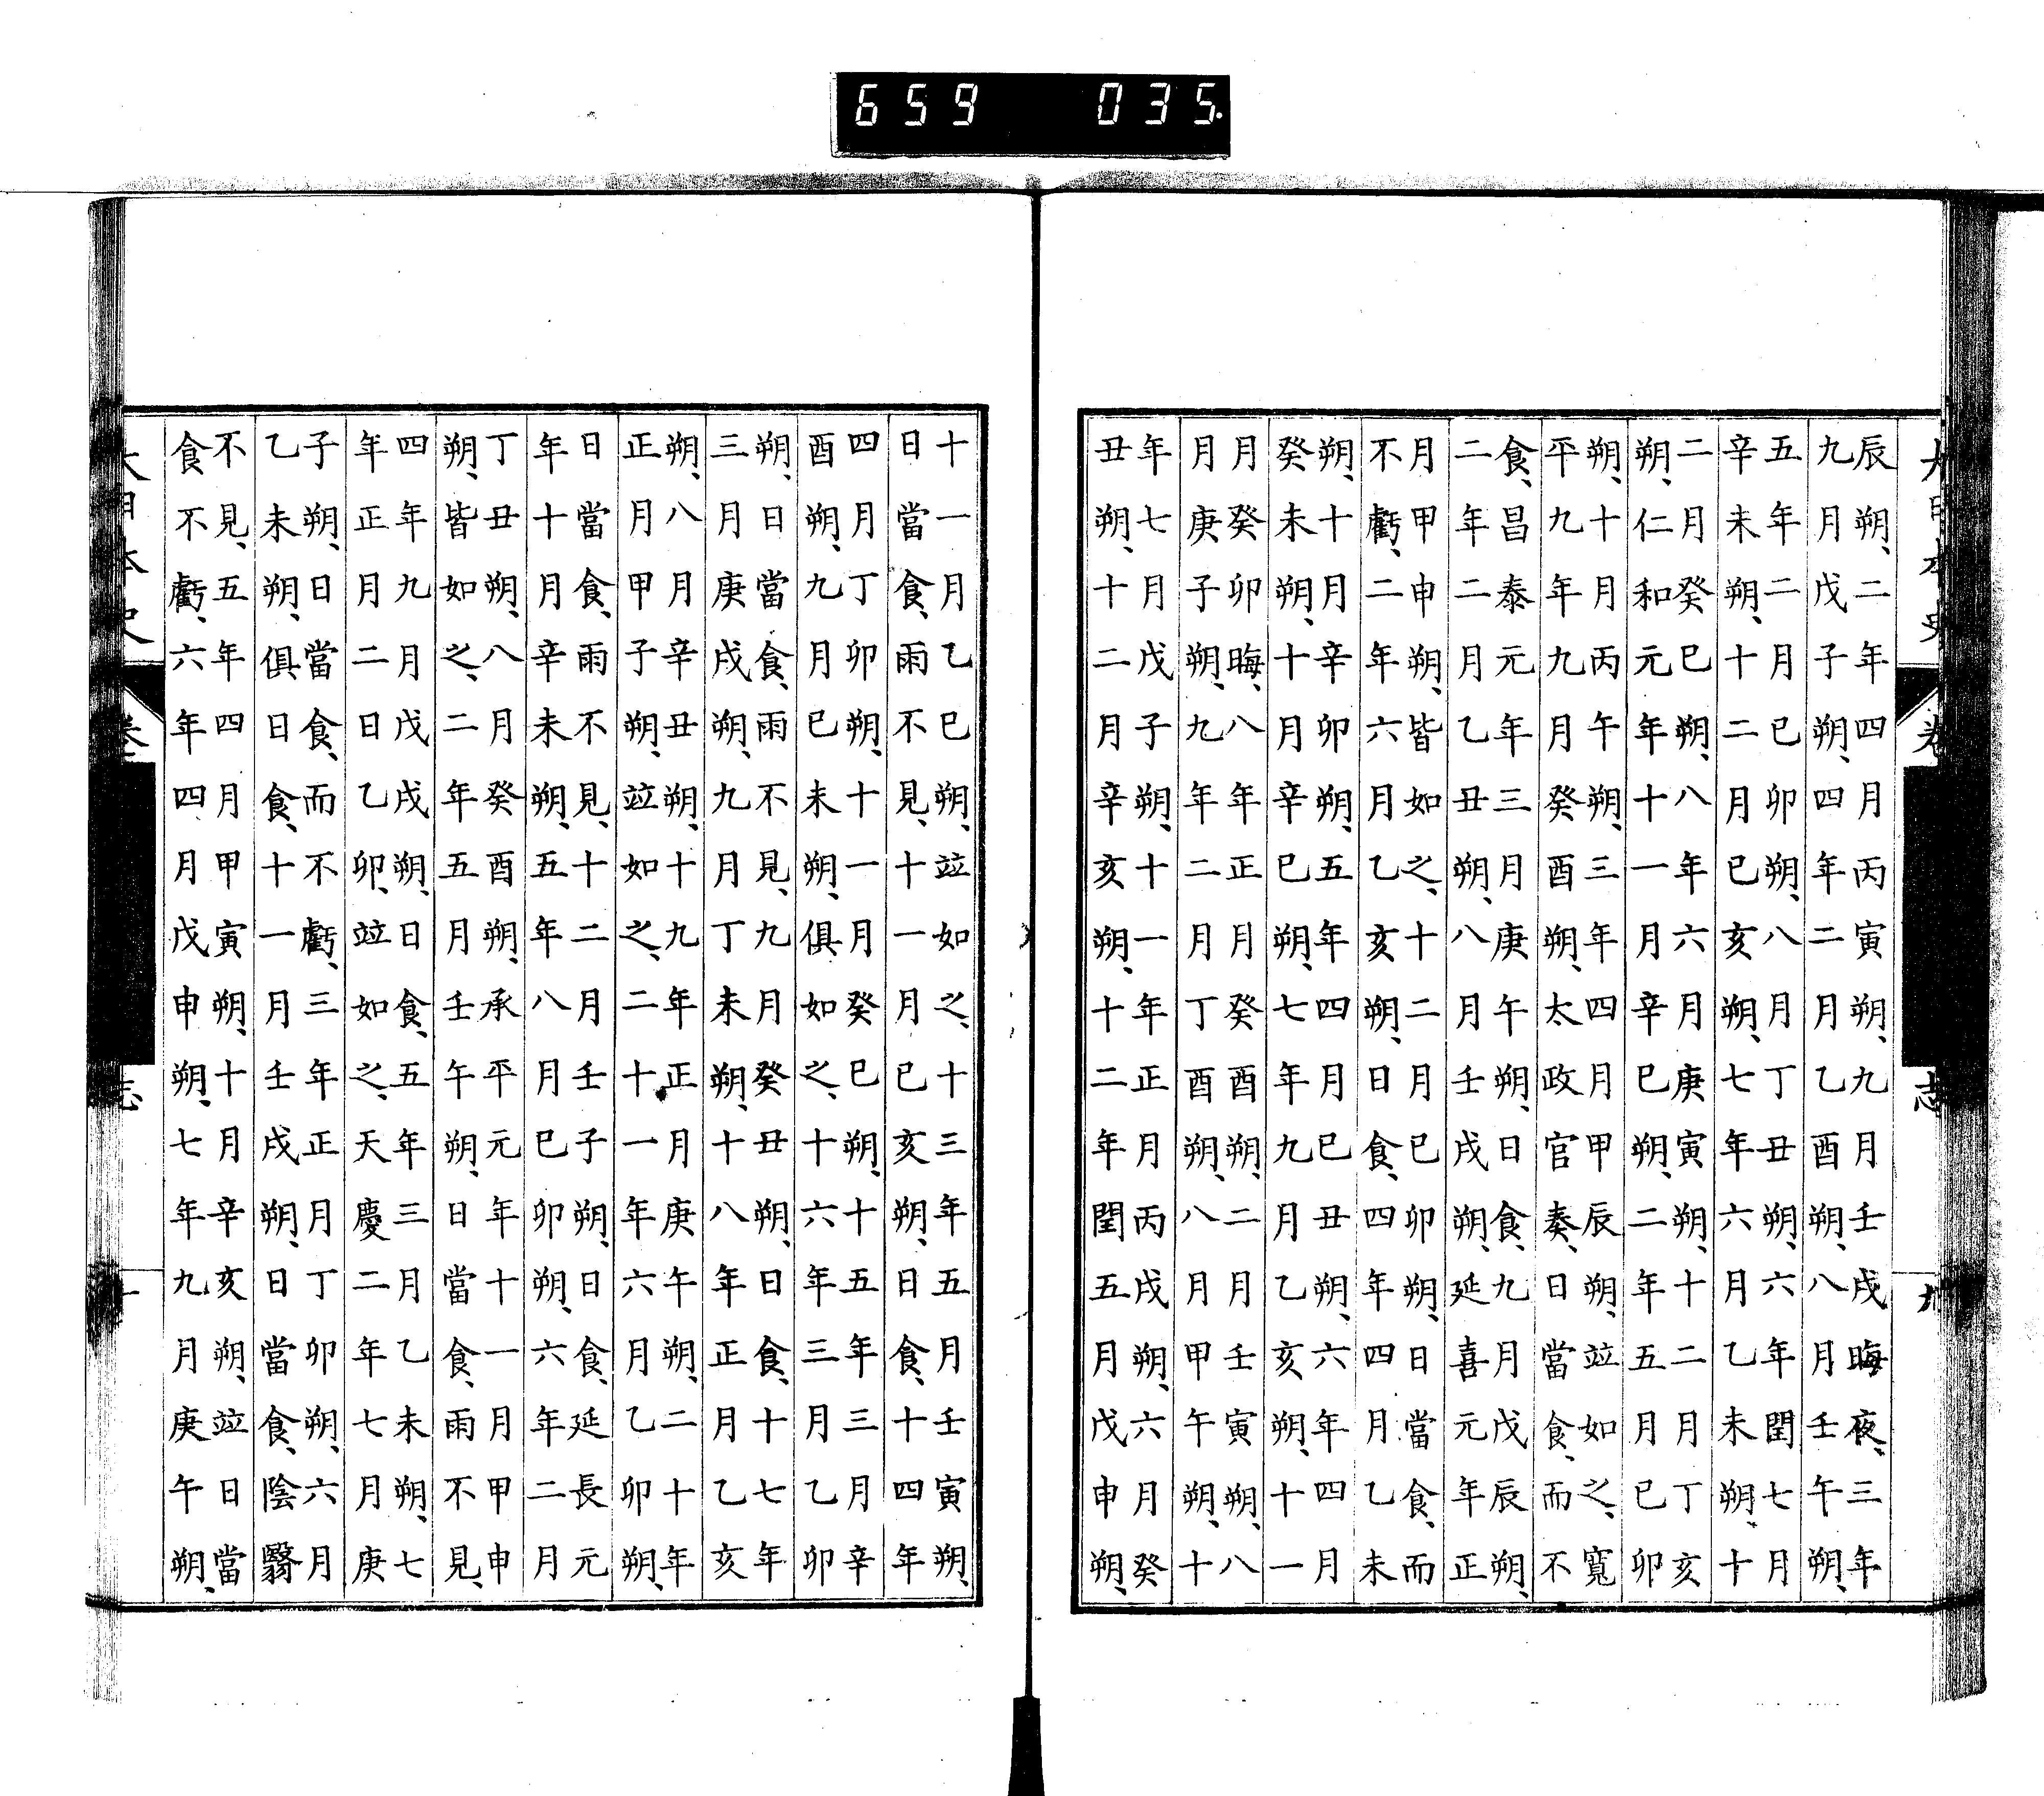 659 035
大日本史 卷 志 九
辰朔、二年四月丙寅朔、九月壬戌晦夜、三年
九月戊子朔、四年二月乙酉朔、八月壬午朔、
五年二月己卯朔、八月丁丑朔、六年閏七月
辛未朔、十二月己亥朔、七年六月乙未朔、十
二月癸巳朔、八年六月庚寅朔、十二月丁亥
朔、仁和元年十一月辛巳朔、二年五月己卯
朔、十月丙午朔、三年四月甲辰朔、竝如之、寬
平九年九月癸酉朔、太政官奏、日當食、而不
食、昌泰元年三月庚午朔、日食、九月戊辰朔、
二年二月乙丑朔、八月壬戌朔、延喜元年正
月甲申朔、皆如之、十二月己卯朔、日當食、而
不虧、二年六月乙亥朔、日食、四年四月乙未
朔、十月辛卯朔、五年四月己丑朔、六年四月
癸未朔、十月辛巳朔、七年九月乙亥朔、十一
月癸卯晦、八年正月癸酉朔、二月壬寅朔、八
月庚子朔、九年二月丁酉朔、八月甲午朔、十
年七月戊子朔、十一年正月丙戌朔、六月癸
丑朔、十二月辛亥朔、十二年閏五月戊申朔、
十一月乙巳朔、竝如之、十三年五月壬寅朔、
日當食、雨不見、十一月己亥朔、日食、十四年
四月丁卯朔、十一月癸巳朔、十五年三月辛
酉朔、九月己未朔、俱如之、十六年三月乙卯
朔、日當食、雨不見、九月癸丑朔、日食、十七年
三月庚戌朔、九月丁未朔、十八年正月乙亥
朔、八月辛丑朔、十九年正月庚午朔、二十年
正月甲子朔、竝如之、二十一年六月乙卯朔、
日當食、雨不見、十二月壬子朔、日食、延長元
年十月辛未朔、五年八月己卯朔、六年二月
丁丑朔、八月癸酉朔、承平元年十一月甲申
朔、皆如之、二年五月壬午朔、日當食、雨不見、
四年九月戊戌朔、日食、五年三月乙未朔、七
年正月二日乙卯、竝如之、天慶二年七月庚
子朔、日當食、而不虧、三年正月丁卯朔、六月
乙未朔、俱日食、十一月壬戌朔、日當食、陰翳
不見、五年四月甲寅朔、十月辛亥朔、竝日當
食不虧、六年四月戊申朔、七年九月庚午朔、
大日本史 卷 志